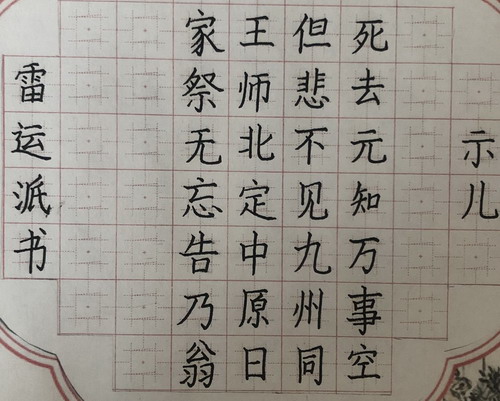 示儿
死去元知万事空
但悲不见九州同
王师北定中原日
家祭无忘告乃翁
雷运派书